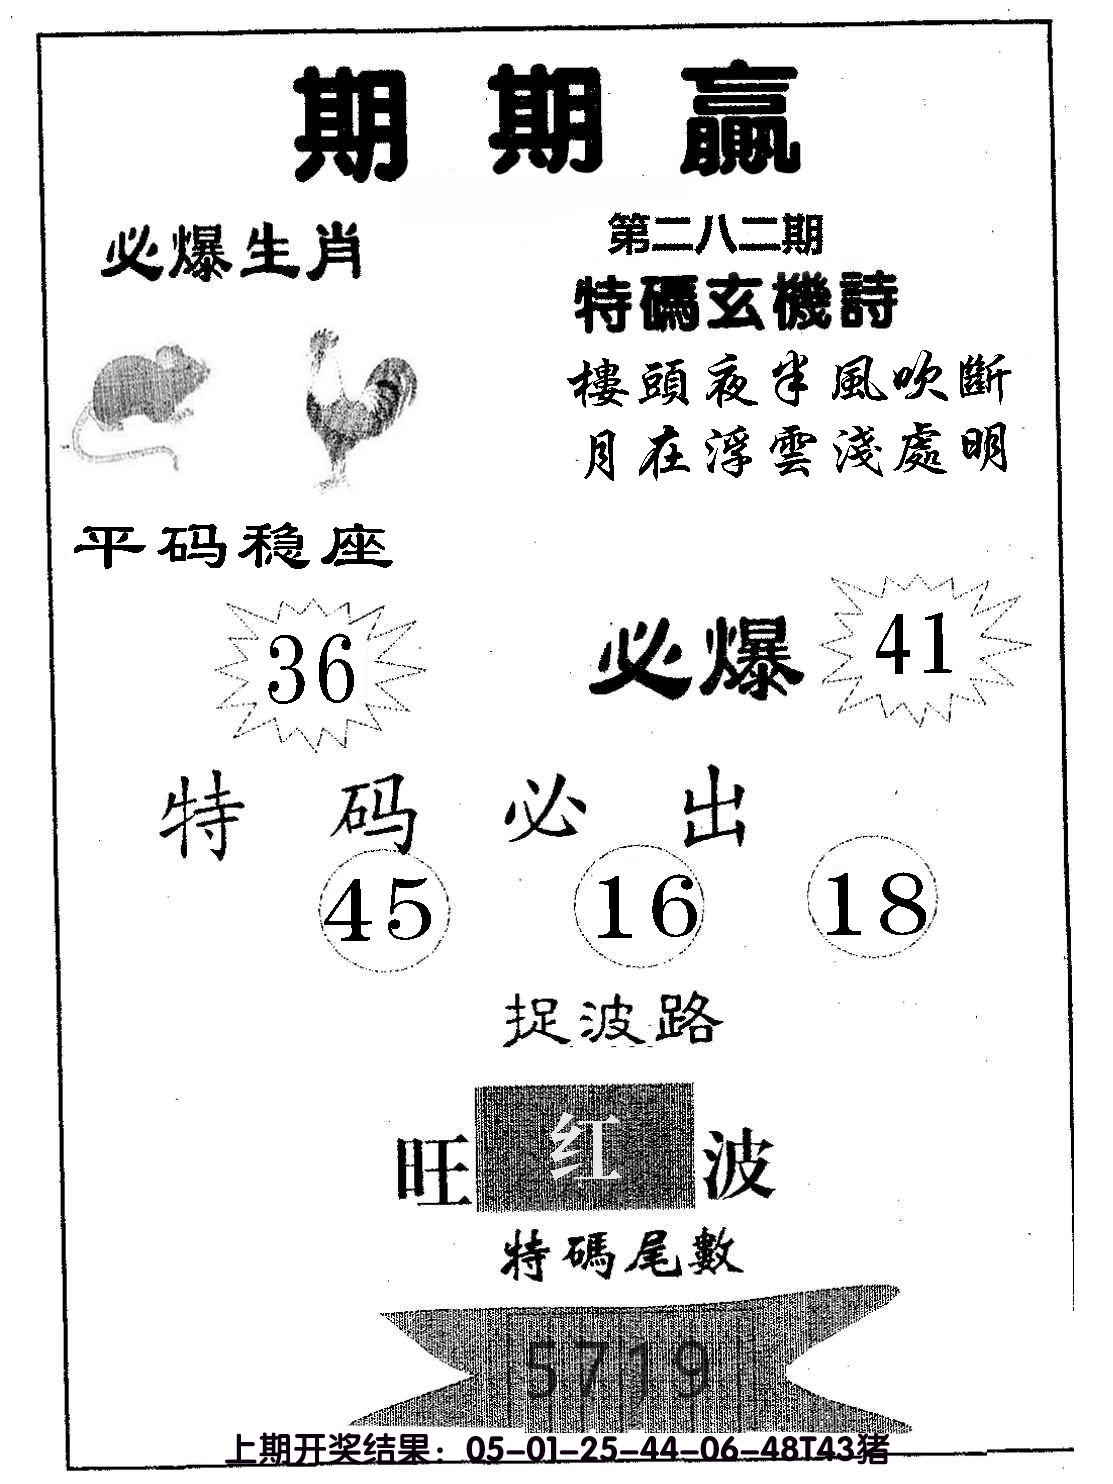 期期赢
第二八二期
必爆生肖
特碼玄機詩
樓頭夜半風吹斷
月在浮雲淺處明
平码稳座
36
必爆 41
特码必出
45 16 18
捉波路
旺红波
特碼尾數
5719
上期开奖结果：05-01-25-44-06-48T43猪